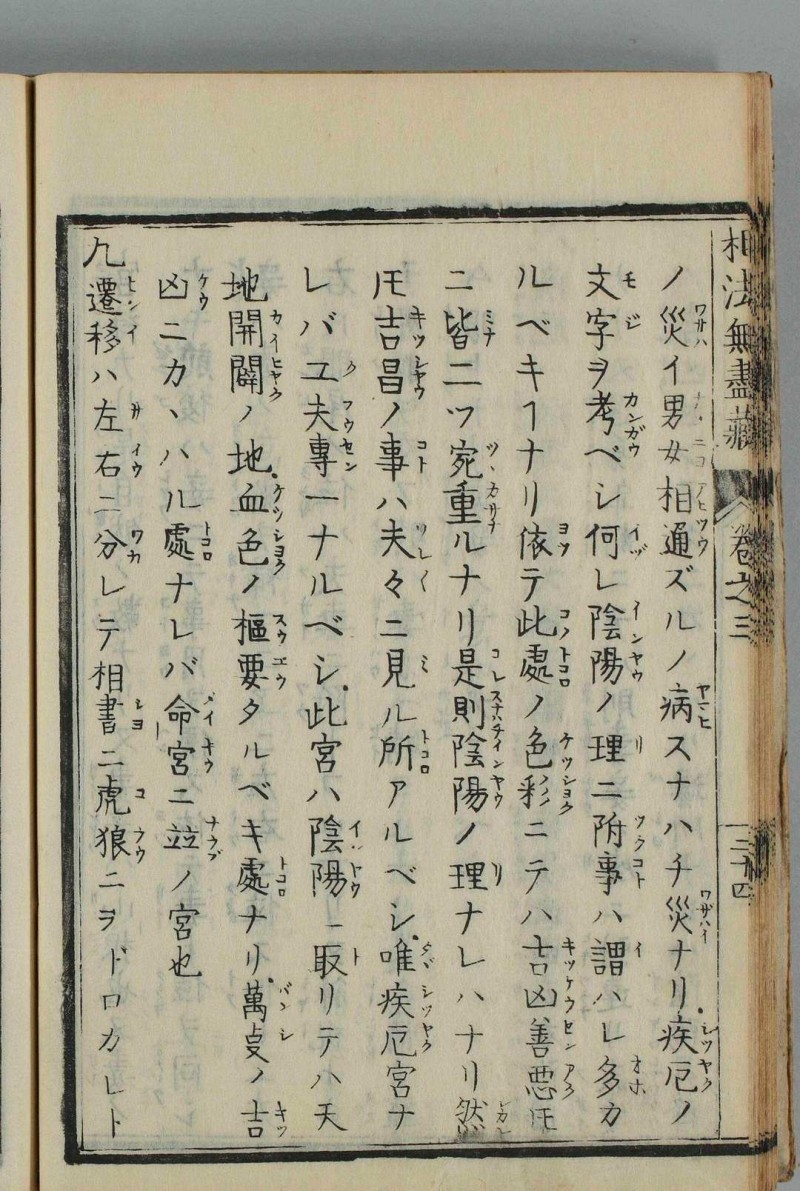 相法無盡藏 卷之三 三十四
ノ災イ男女相通ズルノ病スナハチ災ナリ疾厄ノ
文字ヲ考ベシ何レ陰陽ノ理ニ附事ハ謂ハレ多カ
ルベキヿナリ依テ此處ノ色彩ニテハ吉凶善悪𪜈
ニ皆二ツ宛重ルナリ是則陰陽ノ理ナレハナリ然
𪜈吉昌ノ事ハ夫々ニ見ル所アルベシ唯疾厄宮ナ
レバ工夫專一ナルベシ此宮ハ陰陽ニ取リテハ天
地開闢ノ地血色ノ樞要タルベキ處ナリ萬叓ノ吉
凶ニカヽハル處ナレバ命宮ニ竝ノ宮也
九遷移ハ左右ニ分レテ相書ニ虎狼ニヲドロカレト